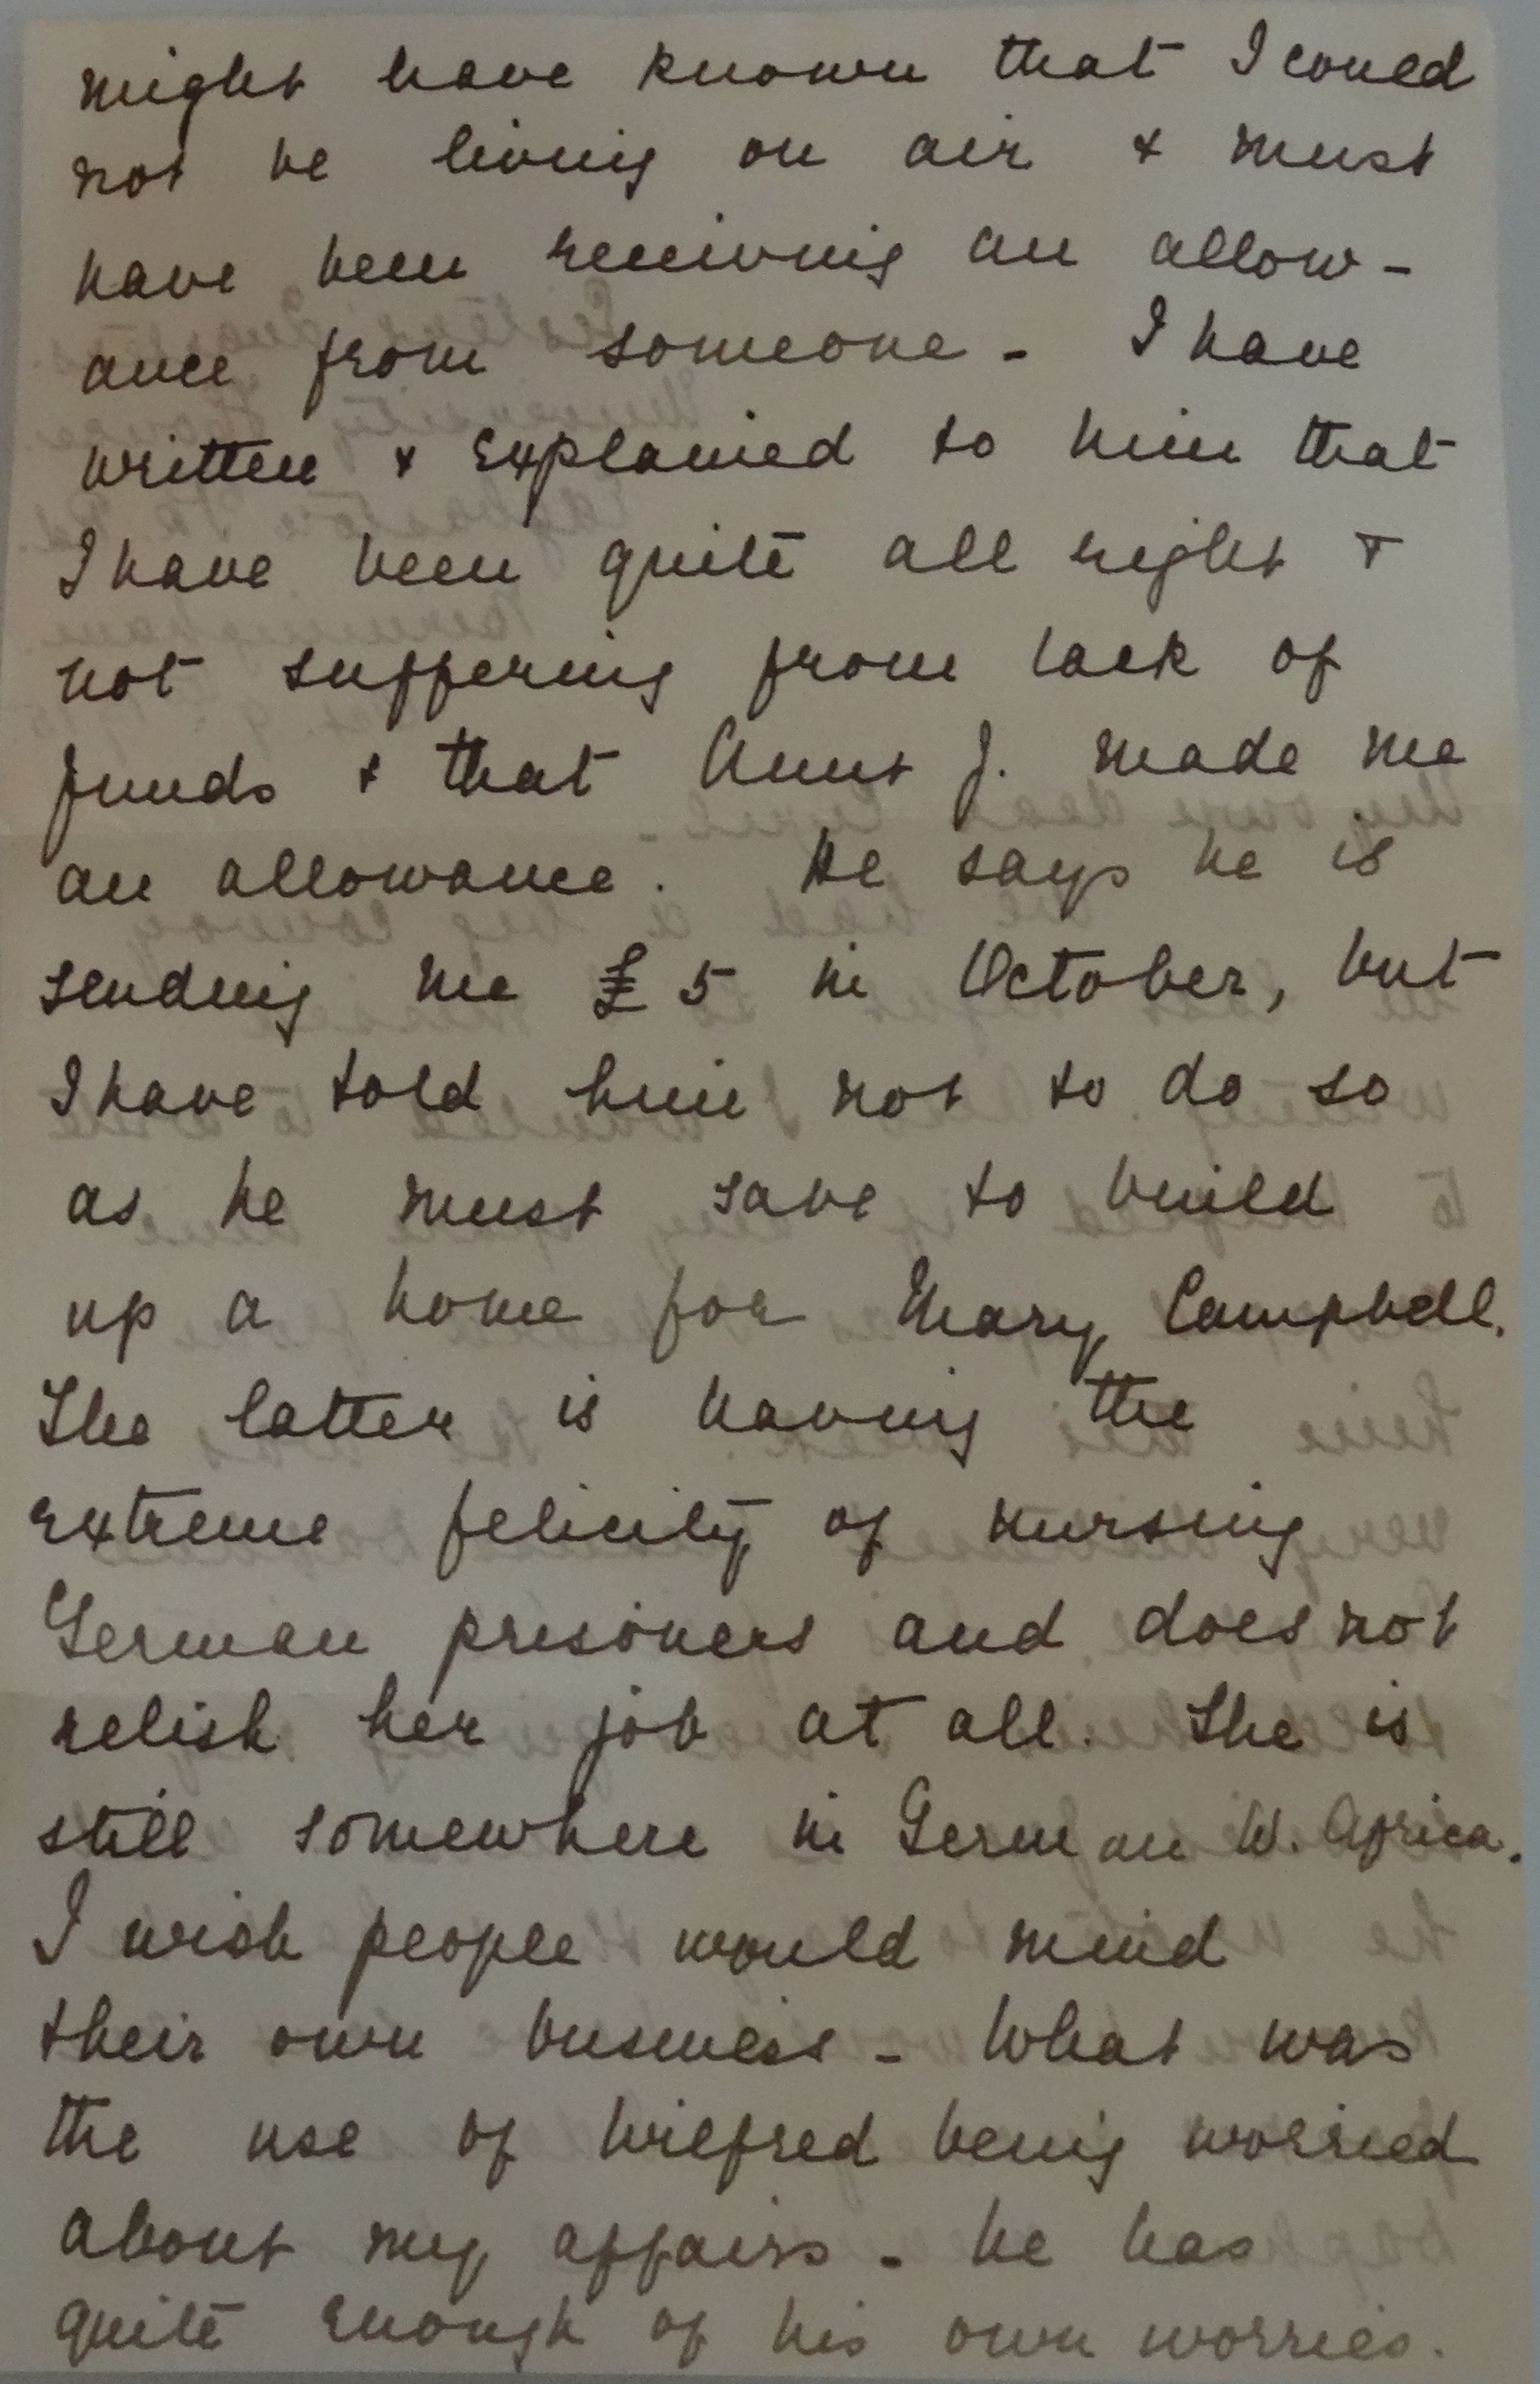 might have known that I could
not be living on air & must
have been receiving an allow-
ance from someone - I have
written & explained to him that
I have been quite all right &
not suffering from lack of
funds & that Aunt J. made me
an allowance. He says he is
sending me £5 in October, but
I have told him not to do so
as he must save to build
up a home for Mary Campbell.
The latter is having the
extreme felicity of nursing
German prisoners and does not
relish her job at all. She is
still somewhere in German W. Africa.
I wish people would mind
their own business - What was
the use of Wilfred being worried
about my affairs - he has
quite enough of his own worries.